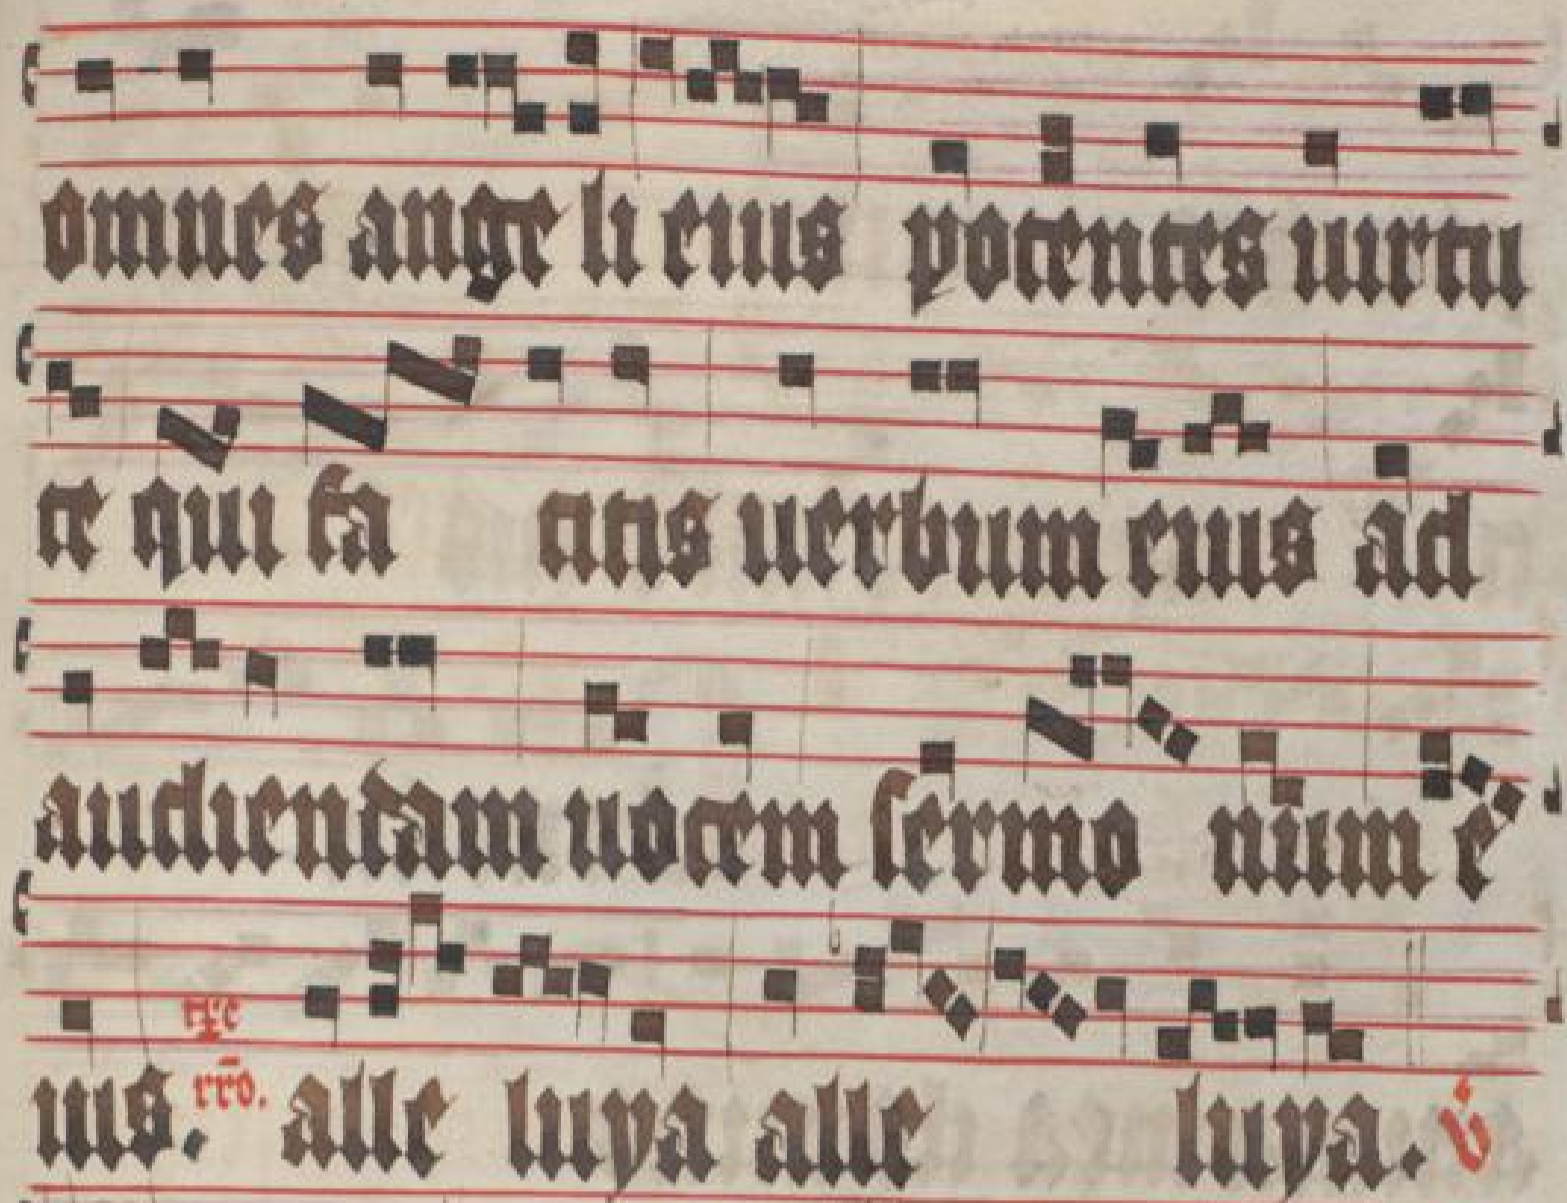 omnes ange li eius potentes uirtu
te qui fa citis uerbum eius ad
audiendam uocem sermo num e
ius. rro. alle luya alle luya. v